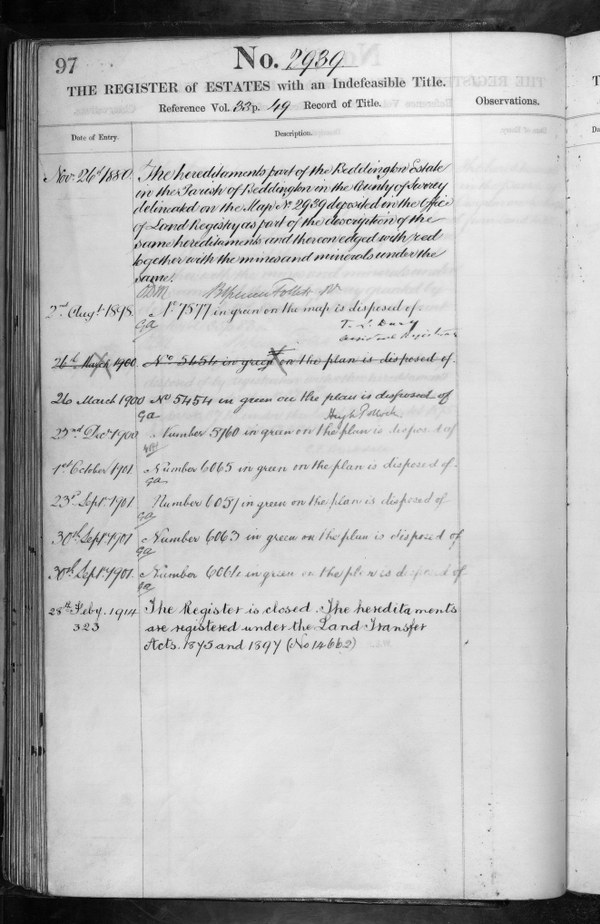 97
No. 2939
THE REGISTER of ESTATES with an Indefeasible Title.
Reference Vol. 33 p. 49 Record of Title.
Observations.
Date of Entry.
Description.
Nov. 26th 1880. The hereditaments part of the Beddington Estate
in the Parish of Beddington in the County of Surrey
delineated on the Map No 2939 deposited in the Office
of Land Registry as part of the description of the
same hereditaments and thereon edged with red
together with the mines and minerals under the
same.
2nd Augt 1898. No 7577 in green on the map is disposed of.
Assistant Registrar
26th March 1900 No 5454 in green on the plan is disposed of.
26 March 1900 No 5454 in green on the plan is disposed of
Hugh Pollock
Decr 1900 Number 5760 in green on the plan is disposed of
1st October 1901. Number 6065 in green on the plan is disposed of.
23rd Septr 1901 Number 6051 in green on the plan is disposed of
30th Septr 1901 Number 6063 in green on the plan is disposed of
30th Septr 1901. Number 6064 in green on the plan is disposed of
28th Feby. 1914 The Register is closed. The heredita ments
323 are registered under the Land Transfer
Acts. 1875 and 1897 (No 14662)